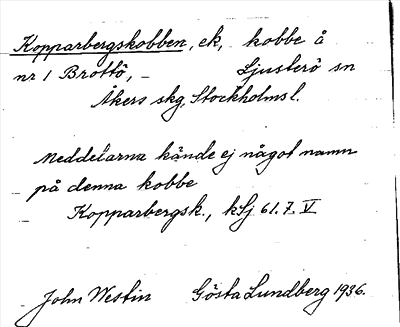 Kopparbergskobben, ek, kobbe å
nr 1 Brottö, – Ljusterö sn
Åkers skg, Stockholms l.
Meddelarna kände ej något namn
på denna kobbe
Kopparbergsk., kSj 61.7 V
John Westin Gösta Lundberg 1936.